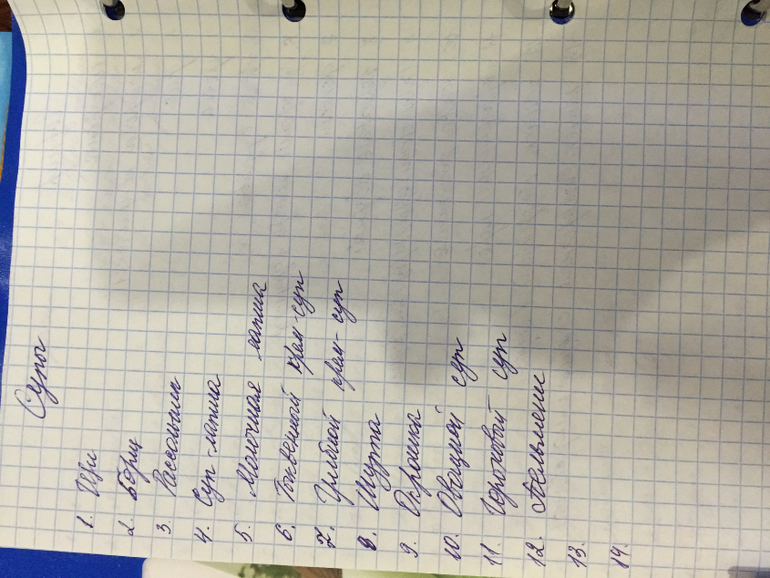 Супы
1. Щи
2. Борщ
3. Рассольник
4. Суп-лапша
5. Молочная лапша
6. Тыквенный крем-суп
7. Грибной крем-суп
8. Шурпа
9. Окрошка
10. Овощной суп
11. Гороховый суп
12. Пельмени
13.
14.